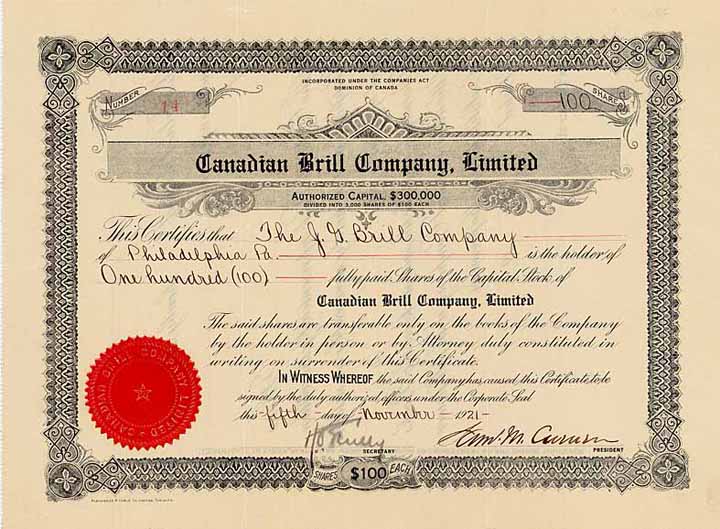 INCORPORATED UNDER THE COMPANIES ACT
DOMINION OF CANADA
NUMBER 14
100 SHARES
Canadian Brill Company, Limited
AUTHORIZED CAPITAL, $300,000
DIVIDED INTO 3,000 SHARES OF $100 EACH
This Certifies that The J. G. Brill Company
of Philadelphia Pa. is the holder of
One hundred (100) fully paid Shares of the Capital Stock of
Canadian Brill Company, Limited
The said shares are transferable only on the books of the Company
by the holder in person or by Attorney duly constituted in
writing on surrender of this Certificate.
IN WITNESS WHEREOF the said Company has caused this Certificate to be
signed by the duly authorized officers under the Corporate Seal
this fifth day of November 1921
SECRETARY
PRESIDENT
SHARES $100 EACH
CANADIAN BRILL COMPANY LIMITED